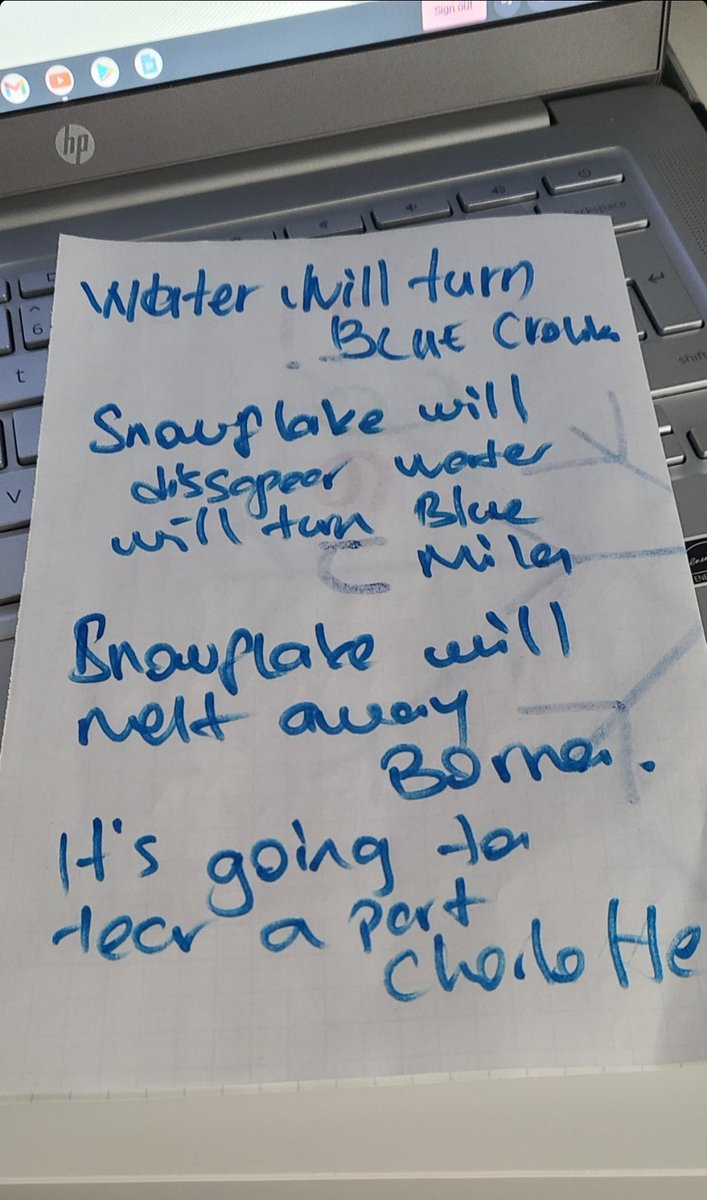 Sign out
hp
backspace
6
t
shift
V
Water will turn
BLUE
Snowflake will
dissapear water
will turn Blue
Milen
Snowflake will
melt away
Borna.
It's going to
tear a part
Charlotte